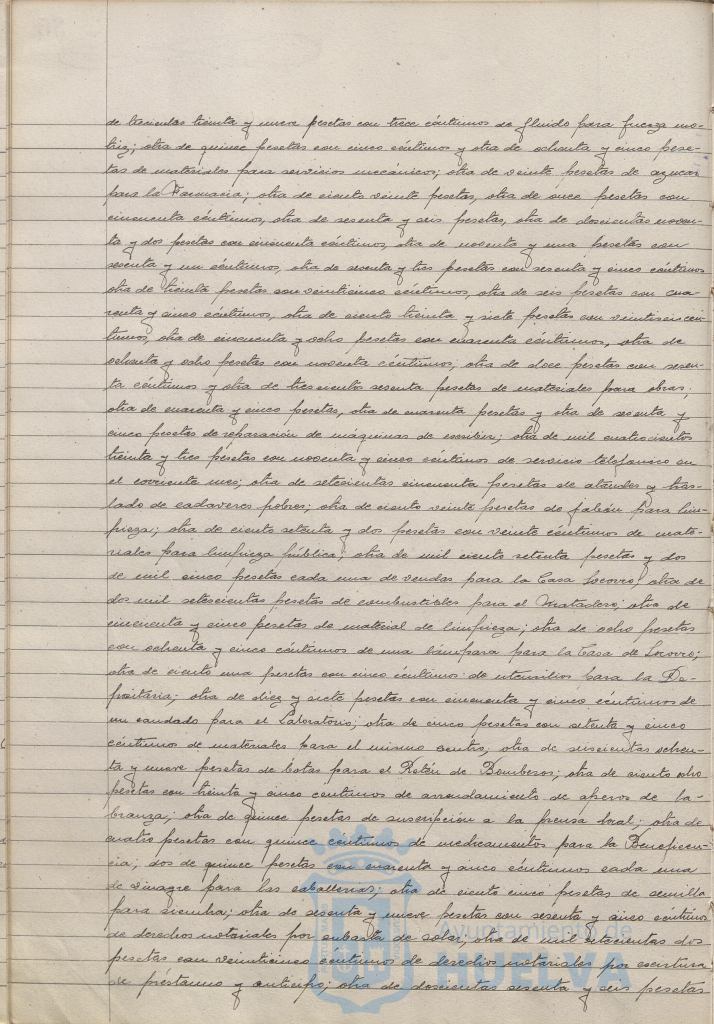 de trescientas treinta y nueve pesetas con trece céntimos de fluido para fuerza mo-
triz; otra de quince pesetas con cinco céntimos y otra de ochenta y cinco pese-
tas de materiales para servicios mecánicos; otra de veinte pesetas de azucar
para la Farmacia; otra de ciento veinte pesetas, otra de once pesetas con
cincuenta céntimos, otra de sesenta y seis pesetas, otra de doscientas noven-
ta y dos pesetas con cincuenta céntimos, otra de noventa y una pesetas con
sesenta y un céntimos, otra de sesenta y tres pesetas con sesenta y cinco céntimos
otra de treinta pesetas con veinticinco céntimos, otra de seis pesetas con cua-
renta y cinco céntimos, otra de ciento treinta y siete pesetas con veintiseis cén-
timos, otra de cincuenta y ocho pesetas con cuarenta céntimos, otra de
ochenta y ocho pesetas con noventa céntimos, otra de doce pesetas con sesen-
ta céntimos y otra de trescientas sesenta pesetas de materiales para obras;
otra de cuarenta y cinco pesetas, otra de cuarenta pesetas y otra de sesenta y
cinco pesetas de reparación de máquinas de escribir; otra de mil cuatrocientas
treinta y tres pesetas con noventa y cinco céntimos de servicio telefonico en
el corriente mes; otra de setecientas cincuenta pesetas de ataudes y tras-
lado de cadaveres pobres; otra de ciento veinte pesetas de jabón para lim-
pieza; otra de ciento setenta y dos pesetas con veinte céntimos de mate-
riales para limpieza pública; otra de mil ciento setenta pesetas y dos
de mil cinco pesetas cada una de vendas para la Casa Socorro; otra de
dos mil setecientas pesetas de combustibles para el Matadero; otra de
cincuenta y cinco pesetas de material de limpieza; otra de ocho pesetas
con ochenta y cinco céntimos de una lámpara para la Casa de Socorro;
otra de ciento una pesetas con cinco céntimos de utensilios para la De-
positaria; otra de diez y siete pesetas con cincuenta y cinco céntimos de
un candado para el Laboratorio; otra de cinco pesetas con setenta y cinco
céntimos de materiales para el mismo centro; otra de seiscientas ochen-
ta y nueve pesetas de botas para el Retén de Bomberos; otra de ciento ocho
pesetas con treinta y cinco céntimos de arrendamiento de aperos de la-
branza; otra de quince pesetas de suscripción a la prensa local; otra de
cuatro pesetas con quince céntimos de medicamentos para la Beneficen-
cia; dos de quince pesetas con cuarenta y cinco céntimos cada una
de vinagre para las caballerias; otra de ciento cinco pesetas de semilla
para siembra; otra de sesenta y nueve pesetas con sesenta y cinco céntimos
de derechos notariales por subasta de solar; otra de mil setecientas dos
pesetas con veinticinco céntimos de derechos notariales por escritura
de préstamo y anticipo; otra de doscientas sesenta y seis pesetas
Ayuntamiento de
HUELVA